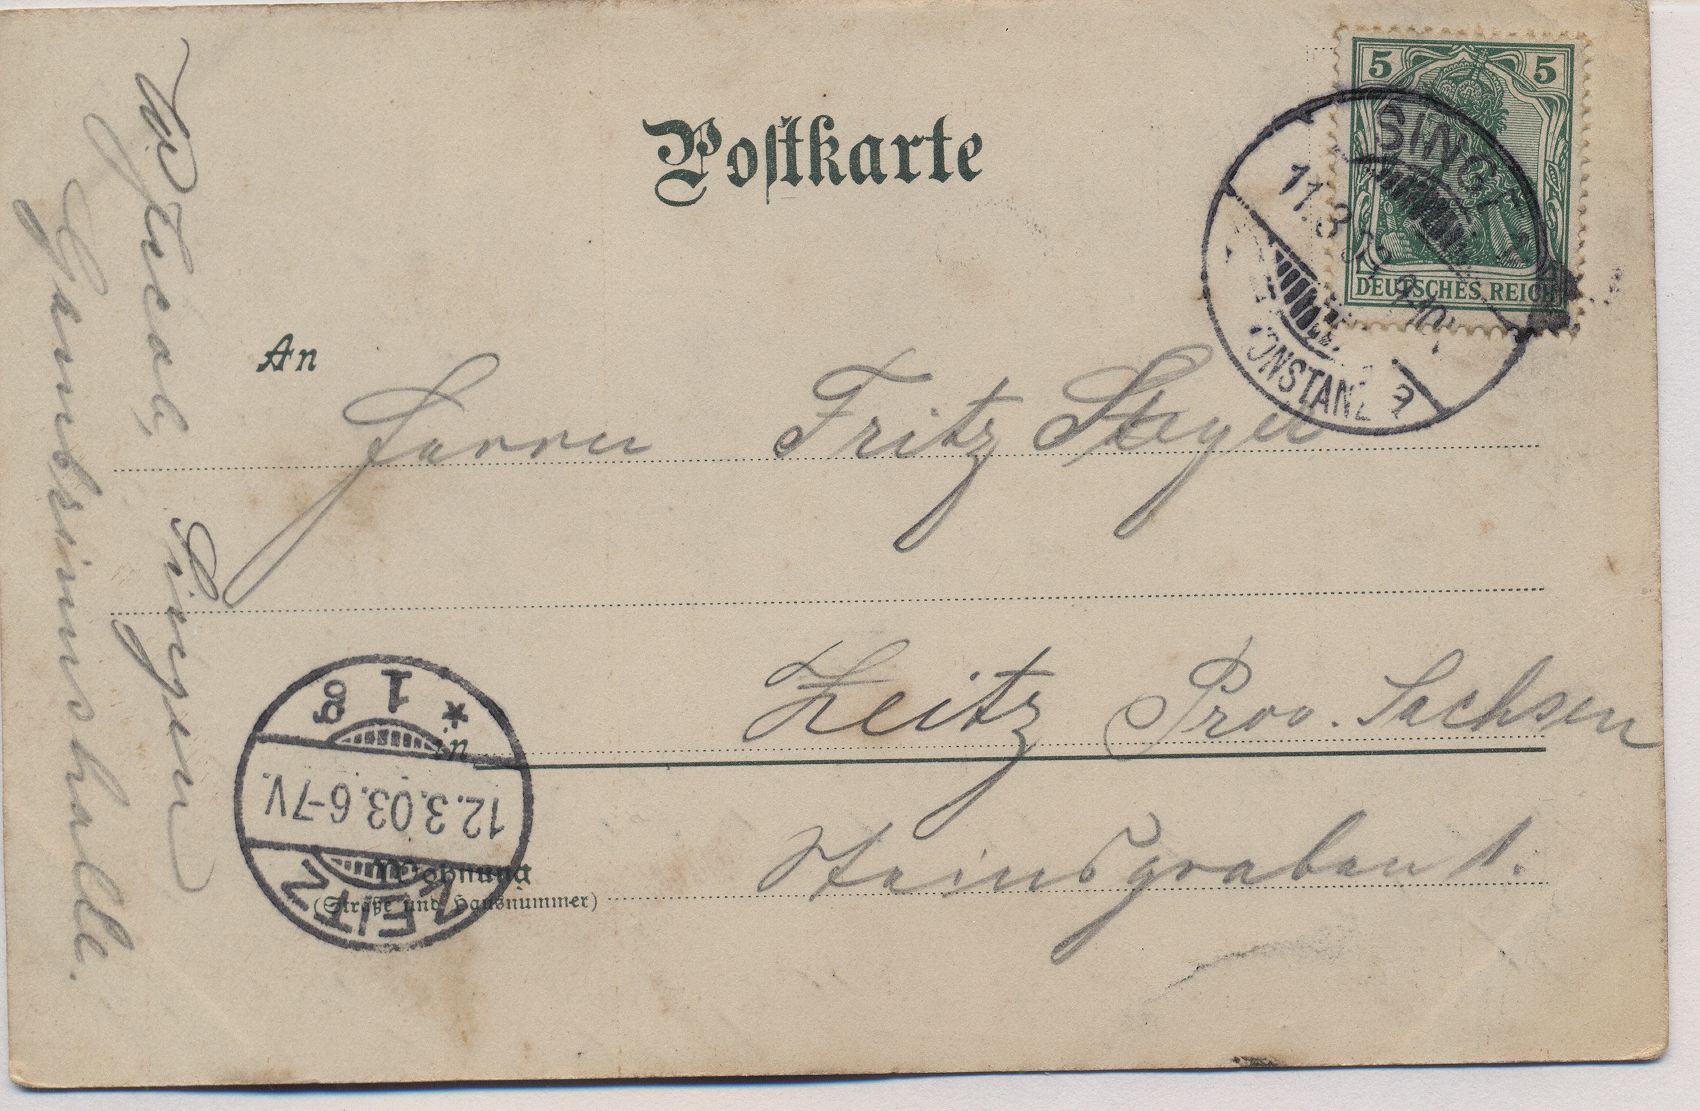 Postkarte
5 5
DEUTSCHES REICH
SINGEN
11.3
KONSTANZ
An
Herrn Fritz
Zeitz Prov. Sachsen
in
Wohnung
(Straße und Hausnummer)
Steinsgraben 1.
ZEITZ
12.3.03.6-7V.
* 1 g
Singen
Gambrinushalle.